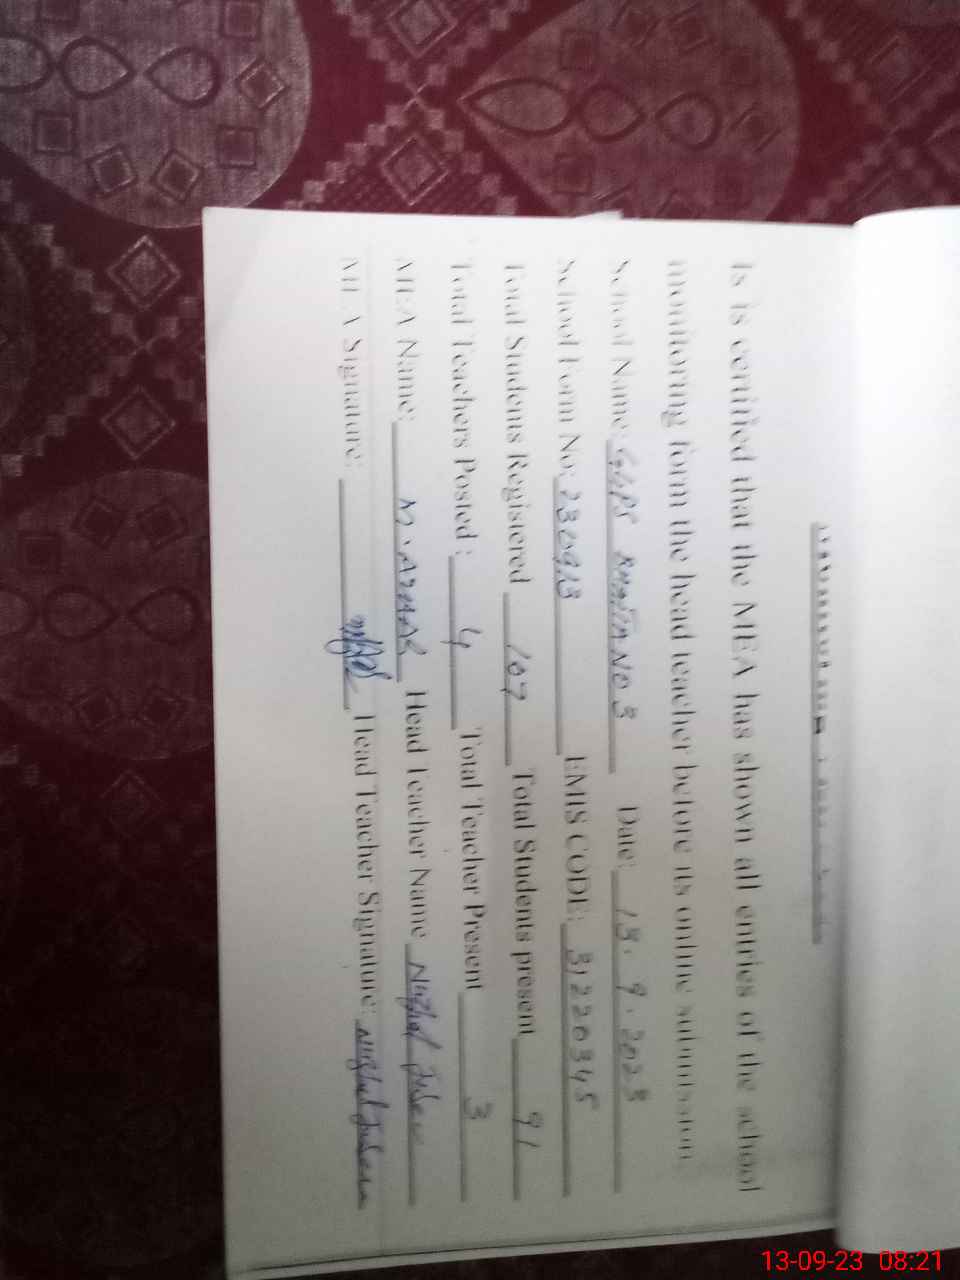 is is certified that the MEA has shown all entries of the school
monitoring form the head teacher before its online submission
School Name: GGPS NO 3 Date: 13.9.2023
School Form No: EMIS CODE: 31220345
Total Students Registered 107 Total Students present 91
Total Teachers Posted : 4 Total Teacher Present 3
MEA Name: M. AZHAR Head Teacher Name Nuzhat
MEA Signature: Head Teacher Signature: Nuzhat
13-09-23 08:21